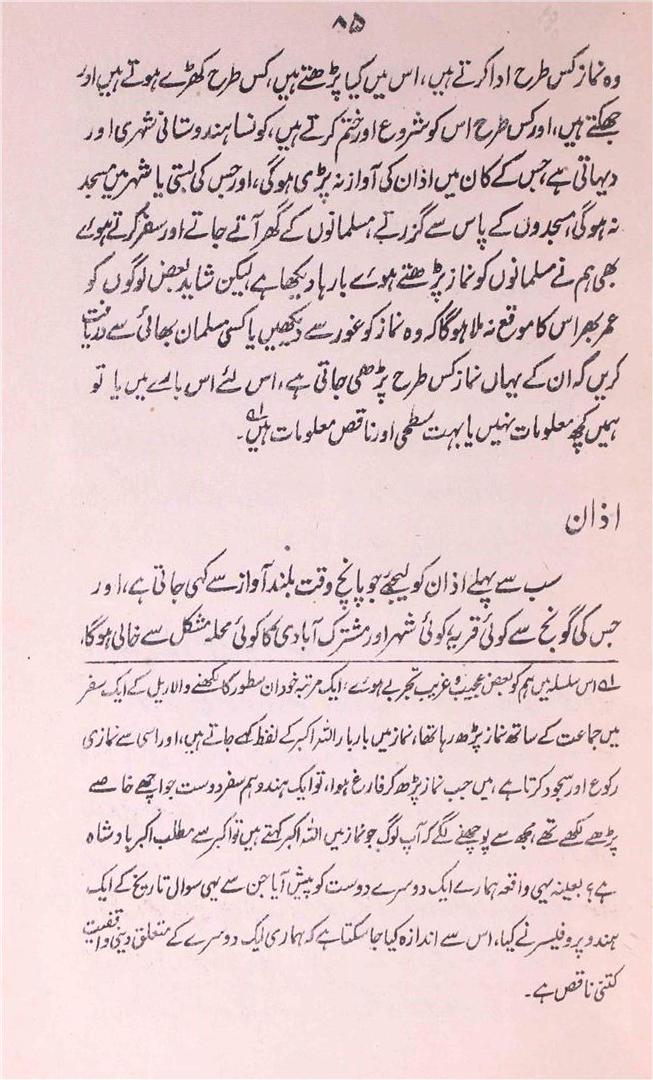 ۸۵
وہ نماز کس طرح ادا کرتے ہیں، اس میں کیا پڑھتے ہیں، کس طرح کھڑے ہوتے ہیں اور
جھکتے ہیں، اور کس طرح اس کو شروع اور ختم کرتے ہیں، کونسا ہندوستانی شہری اور
دیہاتی ہے، جس کے کان میں اذان کی آواز نہ پڑی ہوگی، اور جس کی بستی یا شہر میں مسجد
نہ ہوگی، مسجدوں کے پاس سے گزرتے، مسلمانوں کے گھر آتے جاتے اور سفر کرتے ہوئے
بھی ہم نے مسلمانوں کو نماز پڑھتے ہوئے بارہا دیکھا ہے لیکن شاید بعض لوگوں کو
عمر بھر اس کا موقع نہ ملا ہوگا کہ وہ نماز کو غور سے دیکھیں یا کسی مسلمان بھائی سے دریافت
کریں کہ ان کے یہاں نماز کس طرح پڑھی جاتی ہے، اس لئے اس بارے میں یا تو
ہمیں کچھ معلومات نہیں یا بہت سطحی اور ناقص معلومات ہیں۔ؔ۱
اذان
سب سے پہلے اذان کو لیجئے جو پانچ وقت بلند آواز سے کہی جاتی ہے، اور
جس کی گونج سے کوئی قریہ، کوئی شہر اور مشترک آبادی کا کوئی محلہ مشکل سے خالی ہوگا،
؎۱ اس سلسلہ میں ہم کو بعض عجیب و غریب تجربے ہوئے، ایک مرتبہ خود ان سطور کا لکھنے والا ریل کے ایک سفر
میں جماعت کے ساتھ نماز پڑھ رہا تھا، نماز میں بار بار اللہ اکبر کے لفظ کہے جاتے ہیں، اور اسی سے نمازی
رکوع اور سجود کرتا ہے، میں جب نماز پڑھ کر فارغ ہوا، تو ایک ہندو ہم سفر دوست جو اچھے خاصے
پڑھے لکھے تھے، مجھ سے پوچھنے لگے کہ آپ لوگ جو نماز میں اللہ اکبر کہتے ہیں تو اکبر سے مطلب اکبر بادشاہ
ہے؟ بعینہ یہی واقعہ ہمارے ایک دوسرے دوست کو پیش آیا جن سے یہی سوال تاریخ کے ایک
ہندو پروفیسر نے کیا، اس سے اندازہ کیا جا سکتا ہے کہ ہماری ایک دوسرے کے متعلق دینی واقفیت
کتنی ناقص ہے۔